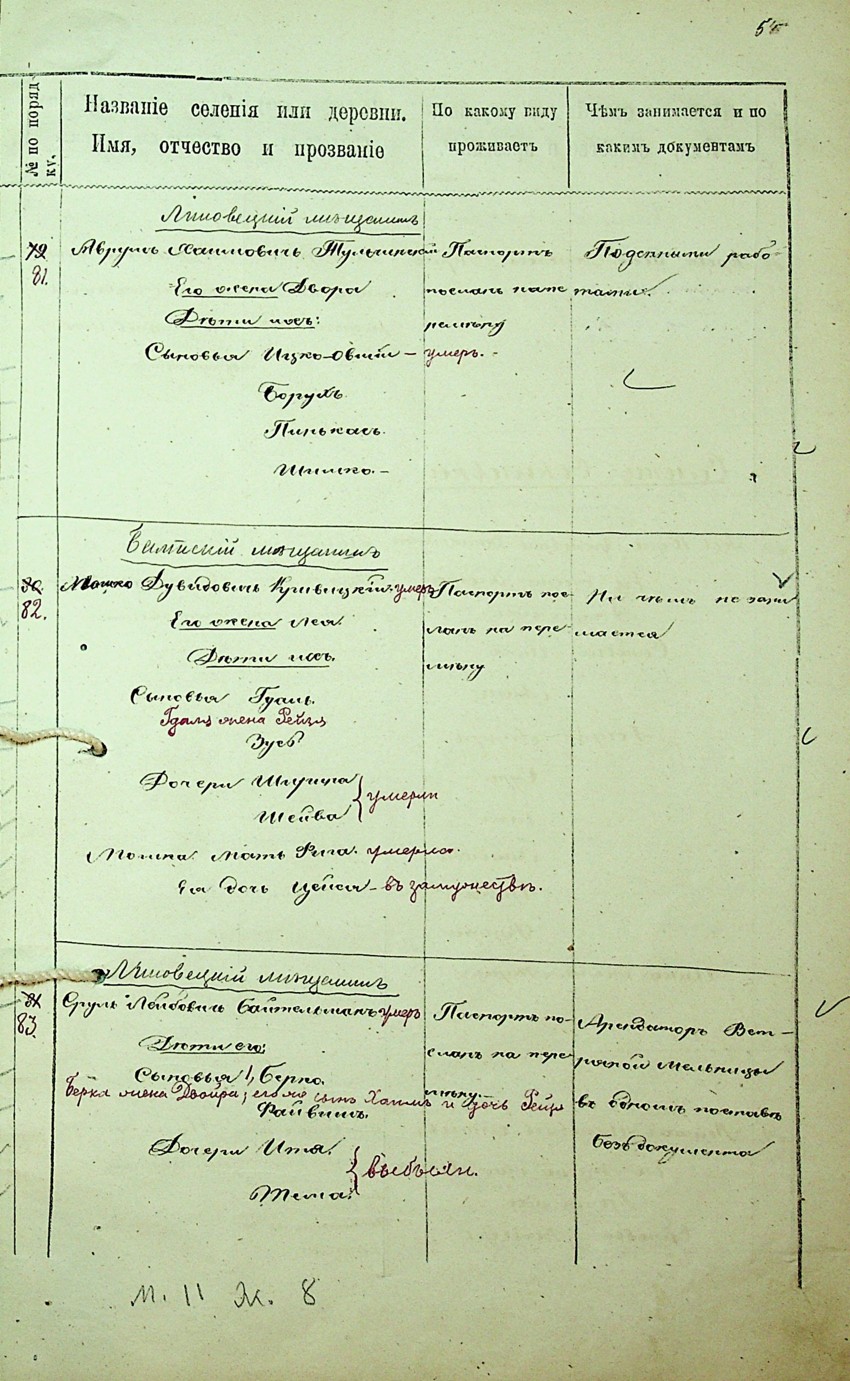 54
№ по порядку.
Названіе селенія или деревни.
Имя, отчество и прозваніе
По какому виду
проживаетъ
Чѣмъ занимается и по
какимъ документамъ
Липовецкій мѣщанинъ
79
81.
Аврумъ Хаимовичъ Тульчинскій
Его жена Двора
Дѣти ихъ:
Сыновья Ицко-Овшій – умеръ. -
Борухъ
Пинькасъ
Шишко. -
Паспортъ
посланъ на пе
ремѣну
Поденными рабо-
тами.
мѣщанинъ
80
82.
Мошко Дувидовичъ Кривицкій. умеръ
Его жена Лея.
Дѣти ихъ.
Сыновья Гдаль.
Гдаля жена Рейзя
Зусь
Дочери
Шейва
умерли
Мошка мать Рися. умерла.
Ея дочь Цейся – въ замужествѣ.
Паспортъ пос-
ланъ на пере-
мѣну
Ни чѣмъ не зани
мается
Липовецкій мѣщанинъ
81
83.
Сруль Лейбовичъ Байтельманъ умеръ
Дѣти его:
Сыновья: Берко
Берка жена Двойра; его же сынъ Хаимъ и дочь Рейзя
Файвишъ.
Дочери Итя.
Тема.
выбыли.
Паспортъ по-
сланъ на пере
мѣну. -
Арендаторъ Вет-
ряной мельницы
въ одномъ поставѣ
безъ документа
М. 11 Ж. 8